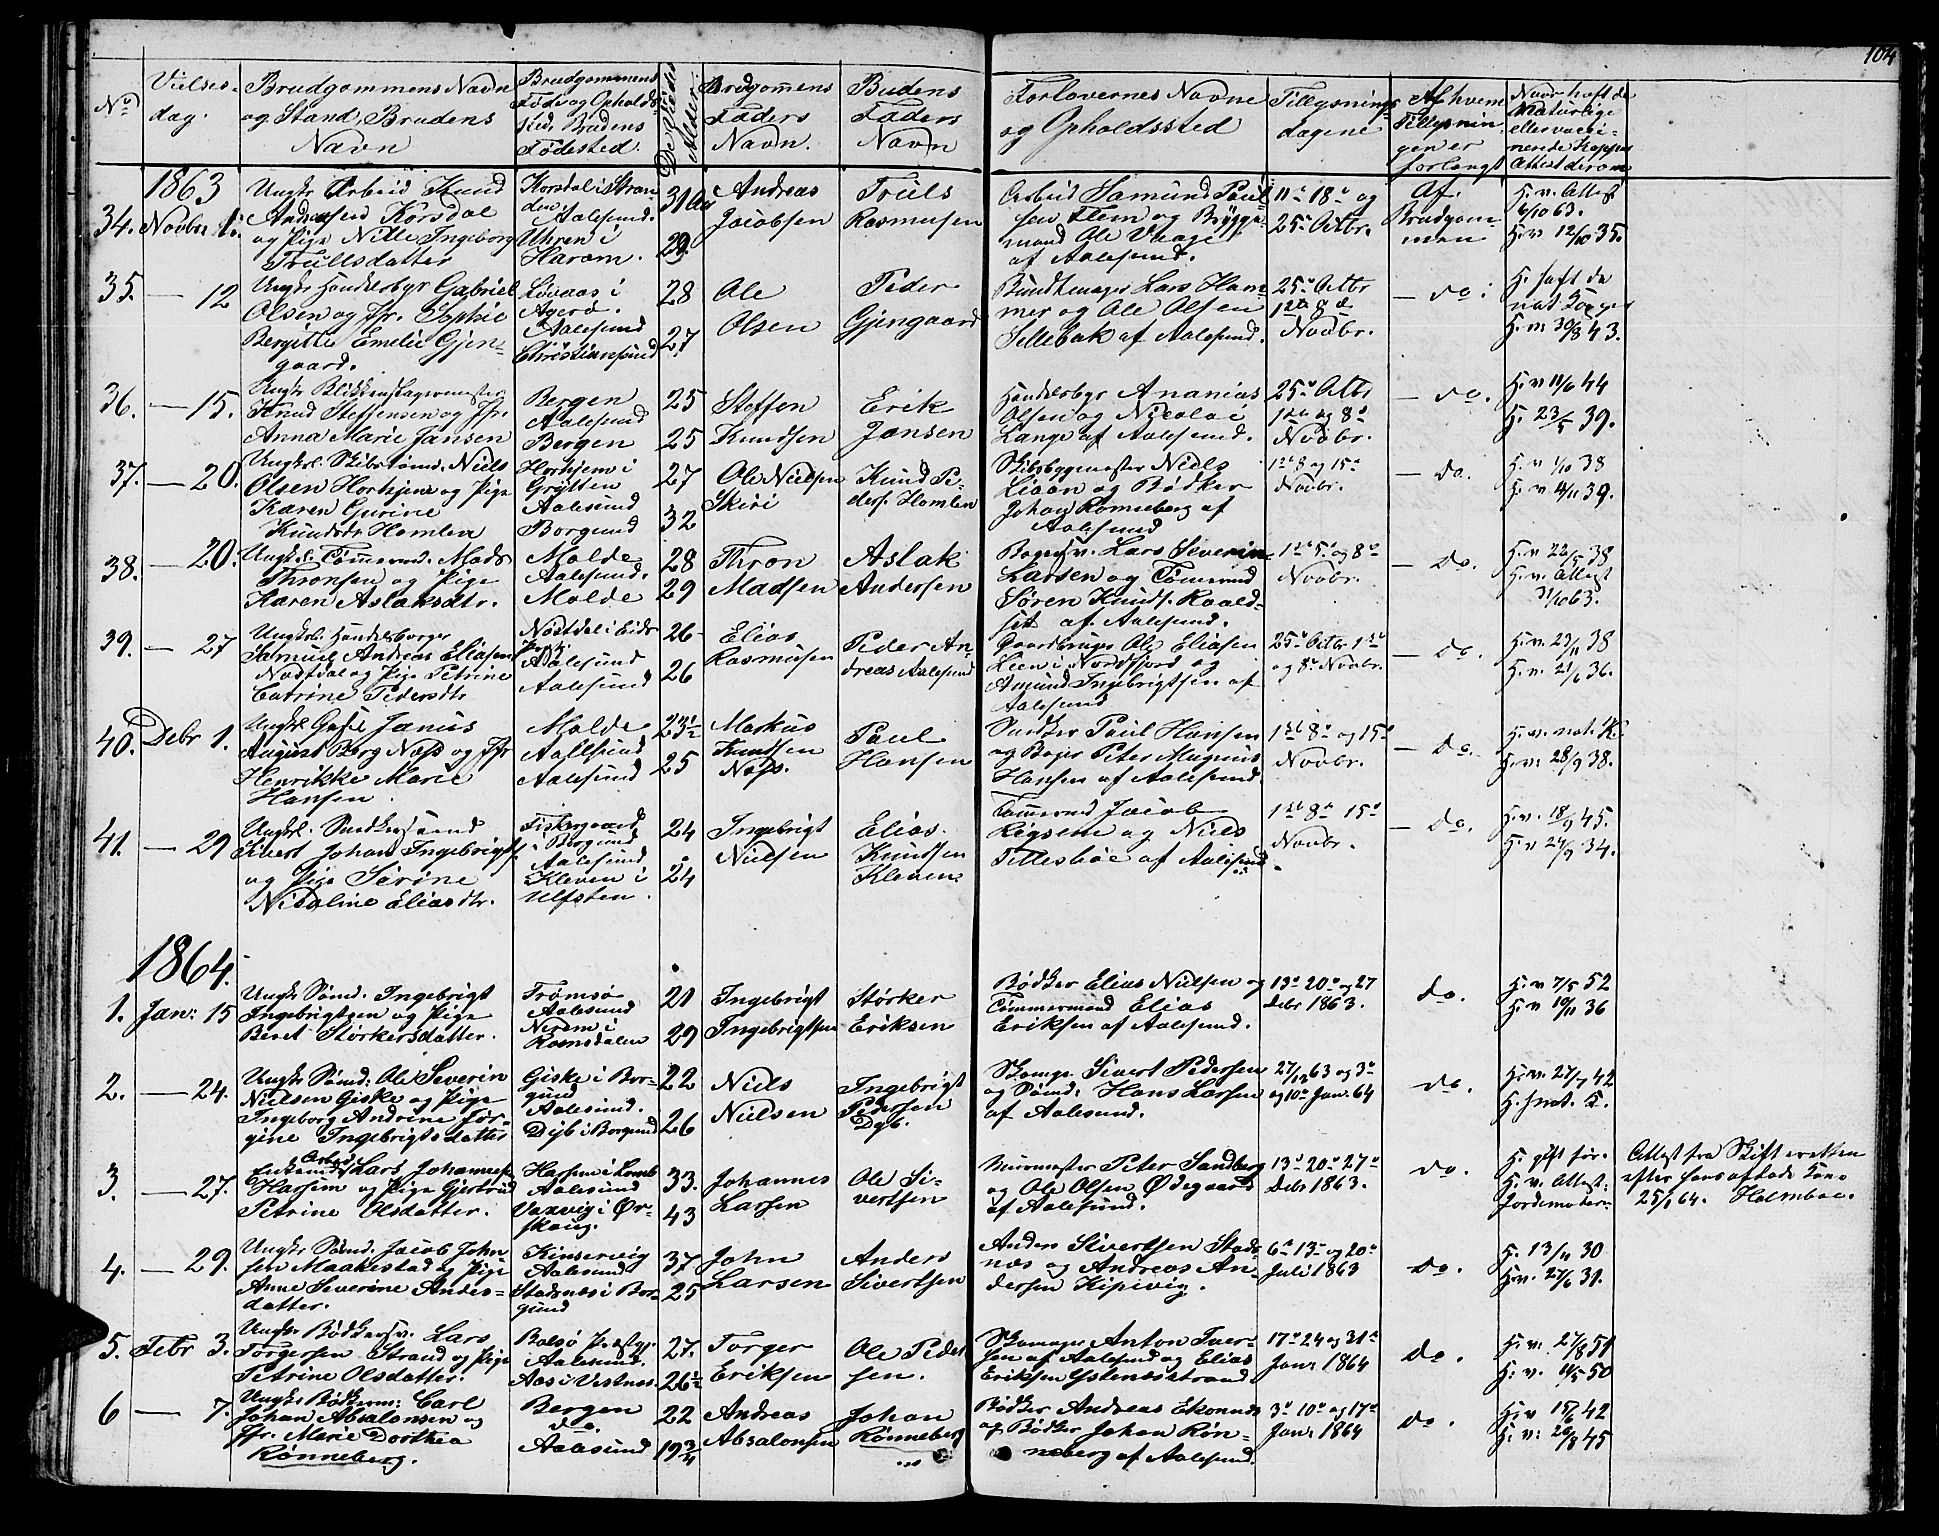 104
No
Vielses-
dag.
Brudgommens Navn
og Stand, Brudens
Navn
Brudgommens
Føde og Opholds-
sted, Brudens
Fødested.
De Viedes
Alder.
Brudgommens
Faders
Navn.
Brudens
Faders
Navn
Forlovernes Navne
og Opholdssted
Tillysnings-
dagene
Af hvem
Tillysnin-
gen er
forlangt
Naar haft de
Naturlige
eller vacci-
nerede Kopper
Attest derom
1863
34. Novbr 1.
Ungkr Arbeid Knud
Andersen Korsdal
og Pige Nille Ingeborg
Trullsdatter
Korsdal i Stran-
den
Aalesund.
Uhren i
Haram.
31
29
Andreas
Jacobsen
Truls
Rasmusen
Arbeid Samund Paul-
sen Flem og Brygge-
mand Ole Vaage
af Aalesund.
11te 18de og
25de Octbr.
Af
Brudgom-
men
H. v. Attest
6/10 63.
H. v. 12/10 35.
35. — 12
Ungkr Handelsbgr Gabriel
Olsen og Jfr. Sophie
Bergitte Emelie Gjen-
gaard.
Løvaas i
Agerø.
Aalesund
Christiansund
28
27
Ole
Olsen
Peder
Gjengaard
Bundtmager Lars Ham-
mer og Ole Olsen
Sillebak af Aalesund.
25de Octbr
1ste 8de
Novbr.
— do.
H. haft de
nat. Kopper
H. v. 30/8 43.
36. — 15.
Ungkr Blikkenslagermester
Knud Steffensen og Jfr.
Anna Marie Jansen
Bergen
Aalesund
Bergen
25
25
Steffen
Knudsen
Erik
Jansen
Handelsbgr Ananias
Olsen og Nicolai
Lange af Aalesund.
25de Octbr
1ste og 8de
Novbr.
— do.
H. v. 11/6 44
H. 23/5 39.
37. — 20.
Ungkrl. Skibstømd. Niels
Olsen Horhjem og Pige
Karen Gurine
Knudsdr Hamlen
Horhjem i
Grytten
Aalesund
Borgund
27
32
Ole Nielsen
Skiri
Knud Pe-
ders. Hamlen
Skibsbygmester Niels
Liaan og Bødker
Johan Rønneberg af
Aalesund
1ste 8 og 15de
Novbr.
— do.
H. v 1/10 38
H. v 4/11 39.
38. — 20.
Ungkrl. Tømmermd. Mads
Thronsen og Pige
Karen Aslaksdtr.
Molde
Aalesund.
Molde
28
29
Thron
Madsen
Aslak
Andersen
Bagersv. Lars Severin
Larsen og Tømermd
Søren Knuds. Roald-
set af Aalesund.
1ste 5te og 8de
Novbr.
— do.
H. v 22/5 38
H. v. Attest
31/10 63.
39. — 27
Ungkrl. Handelsborger
Samuel Andreas Eliasen
Nøstdal og Pige Petrine
Catrine Pedersdtr
Nøstdal i Eids-
Aalesund
Aalesund
26
26
Elias
Rasmusen
Peder An-
dreas Aalesund
Gaardbruger Ole Eliasen
Leen i Nordfjord og
Amund Ingebrigtsen af
Aalesund
25de Octbr 1ste
og 8de Novbr.
— do.
H. v. 23/11 38
H. v. 21/6 36.
40. Debr 1.
Ungkl. Janus
August Berg Næss og Jfr
Henrikke Marie
Hansen
Molde
Aalesund
Aalesund
23½
25
Markus
Knudsen
Næss.
Paul
Hansen
Snedker Paul Hansen
og Bager Peter Magnus
Hansen af Aalesund.
1ste 8de og 15de
Novbr.
— do.
H. v. nat. K.
H. v. 28/9 38.
41. — 29
Ungkrl. Snedkersvend
Sivert Johan Ingebrigts.
og Pige Serine
Nicoline Eliasdtr.
Fiskergaard
i Borgund
Aalesund
Kleven i
Ulfsten.
24
24
Ingebrigt
Nielsen
Elias
Knudsen
Kleven
Tømmermd Jacob
og Niels
Tillesbøe af Aalesund
1ste 8de 15de
Novbr.
— do.
H. v. 18/9 45.
H. v 24/9 34.
1864.
1. Jan: 15
Ungkr Sømd. Ingebrigt
Ingebrigtsen og Pige
Beret Størkersdatter.
Tromsø
Aalesund
i
Romsdalen
21
29
Ingebrigt
Ingebrigtsen
Størker
Eriksen
Bødker Elias Nielsen og
Tømmermand Elias
Eriksen af Aalesund.
13de 20de og 27
Debr 1863.
do.
H. v 7/5 52
H. v 19/11 36
2. — 24.
Ungkr Sømd: Ole Severin
Nielsen Giske og Pige
Ingeborg Andrine Jør-
gine Ingebrigtsdatter
Giske i Bor-
gund
Aalesund.
Dyb i Borgund
22
26
Niels
Nielsen
Ingebrigt
Pedersen
Dyb.
Skomgr. Sivert Pedersen
og Sømd: Hans Larsen
af Aalesund.
27/12 63 og 3de
og 10de Jan. 64
do.
H. v. 27/7 42
H. h nat. K.
3. — 27.
Arbeid
Enkemd Lars Johannes.
Harsem og Pige Gjertrud
Petrine Olsdatter.
Harsem i Lomb
Aalesund
Vaxvig i Ør-
skoug.
33.
43
Johannes
Larsen
Ole Si-
vertsen
Muurmester Peter Sandberg
og Ole Olsen Ødegaard
af Aalesund.
13de 20de 27de
Debr 1863.
do.
H. gift før.
H. v. Attest:
Jordemoderen
Attest fra Skifteretten
efter hans afdøde Kone
25/1 64. Holmboe.
4. — 29.
Ungkr Sømd. Jacob John
sen Maakestad og Pige
Anne Severine Anders-
datter.
Kinservig
Aalesund
Stadsnæs i Bor-
gund
37
25
John
Larsen
Anders
Sivertsen
Anders Sivertsen Stads-
næs og Andreas An-
dersen Kipevig.
6te 13de og 20de
Juli 1863
do.
H. 13/11 30
H. v. 27/6 31.
5. Febr 3.
Ungkr Bødkersv. Lars
Torgersen Strand og Pige
Petrine Olsdatter.
Bolsø Præstgj.
Aalesund.
Aas i Vestnes.
27.
26½
Torger
Eriksen
Ole Peder
sen.
Skomager Anton Iver-
sen af Aalesund og Elias
Eriksen Gjelnesstrand.
17de 24 og 31te
Janr 1864
do.
H. v. 27/8 51
H. v. 11/5 50
6 — 7.
Ungkr Bødkersv: Carl
Johan Absalonsen og
Jfr. Marie Dorthea
Rønneberg.
Bergen
do.
Aalesund
22
19¾
Andreas
Absalonsen
Johan
Rønneberg
Bødker Andreas Ekonnes
og Bødker Johan Røn-
neberg af Aalesund.
3de 10de og 17de
Janr 1864
do.
H. v 15/6 42
H. v: 26/8 45